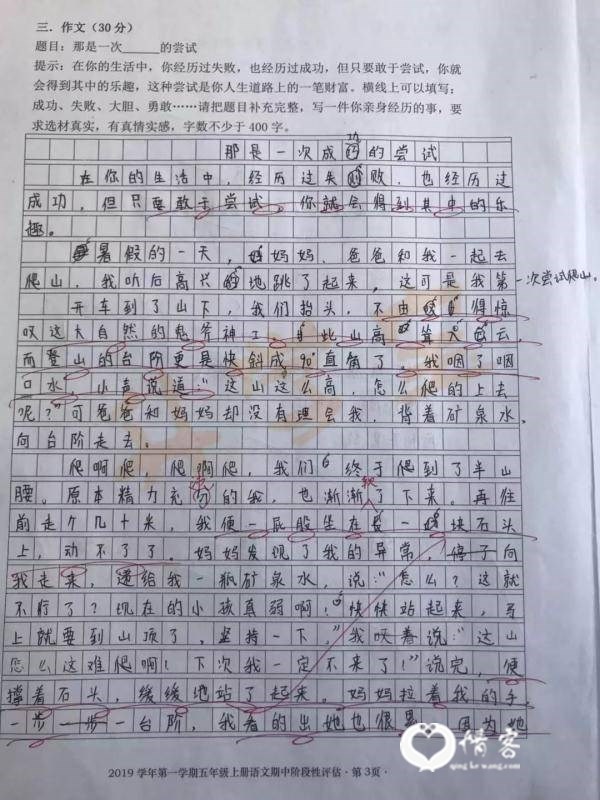 三．作文（30分）
题目：那是一次______的尝试
提示：在你的生活中，你经历过失败，也经历过成功，但只要敢于尝试，你就
会得到其中的乐趣，这种尝试是你人生道路上的一笔财富。横线上可以填写：
成功、失败、大胆、勇敢……请把题目补充完整，写一件你亲身经历的事，要
求选材真实，有真情实感，字数不少于400字。
那是一次成功的尝试
在你的生活中，经历过失败，也经历过
成功，但只要敢于尝试，你就会得到其中的乐
趣。
暑假的一天，妈妈、爸爸和我一起去
爬山，我听后高兴的地跳了起来，这可是我第一次尝试爬山。
开车到了山下，我们抬头，不由得惊
叹这大自然的鬼斧神工，此山高耸入云，
而登山的台阶更是快斜成90°直角了。我咽了咽
口水，小声说道："这山这么高，怎么爬的上去
呢？"可爸爸和妈妈却没有理会我，背着矿泉水，
向台阶走去。
爬啊爬，爬啊爬，我们终于爬到了半山
腰。原本精力充沛的我，也渐渐软了下来。再往
前走个几十米，我便一屁股坐在一块石头
上，动不了了。妈妈发现了我的异常，向
我走来，递给我一瓶矿泉水，说："怎么？这就
不行了？现在的小孩真弱啊！快快站起来，马
上就要到山顶了，坚持一下。"我哭着说："这山
怎么这难爬啊！下次我一定不来了！"说完，便
撑着石头，缓缓地站了起来。妈妈拉着我的手，
一步一步一台阶，我看的出她也很累，因为她
2019学年第一学期五年级上册语文期中阶段性评估·第3页·
情客
qingke wang.com